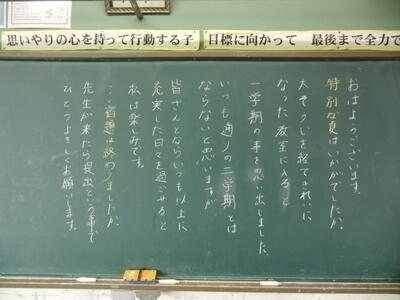 思いやりの心を持って行動する子
目標に向かって 最後まで全力で
おはようございます。
特別な夏はいかがでしたか。
大そうじを経てきれいに
なった教室に入ると
一学期の事を思い出しました。
いつも通りの二学期とは
ならないと思いますが
皆さんとならいつも以上に
充実した日々を過ごせると
私は楽しみです。
…宿題は終わりましたか。
先生が来たら提出という事で
ひとつよろしくお願います。